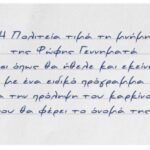 Η Πολιτεία τιμά τη μνήμη
της Φώφης Γεννηματά
όπως θα ήθελε και εκείνη
με ένα ειδικό πρόγραμμα
την πρόληψη του καρκίνου
που θα φέρει το όνομά της